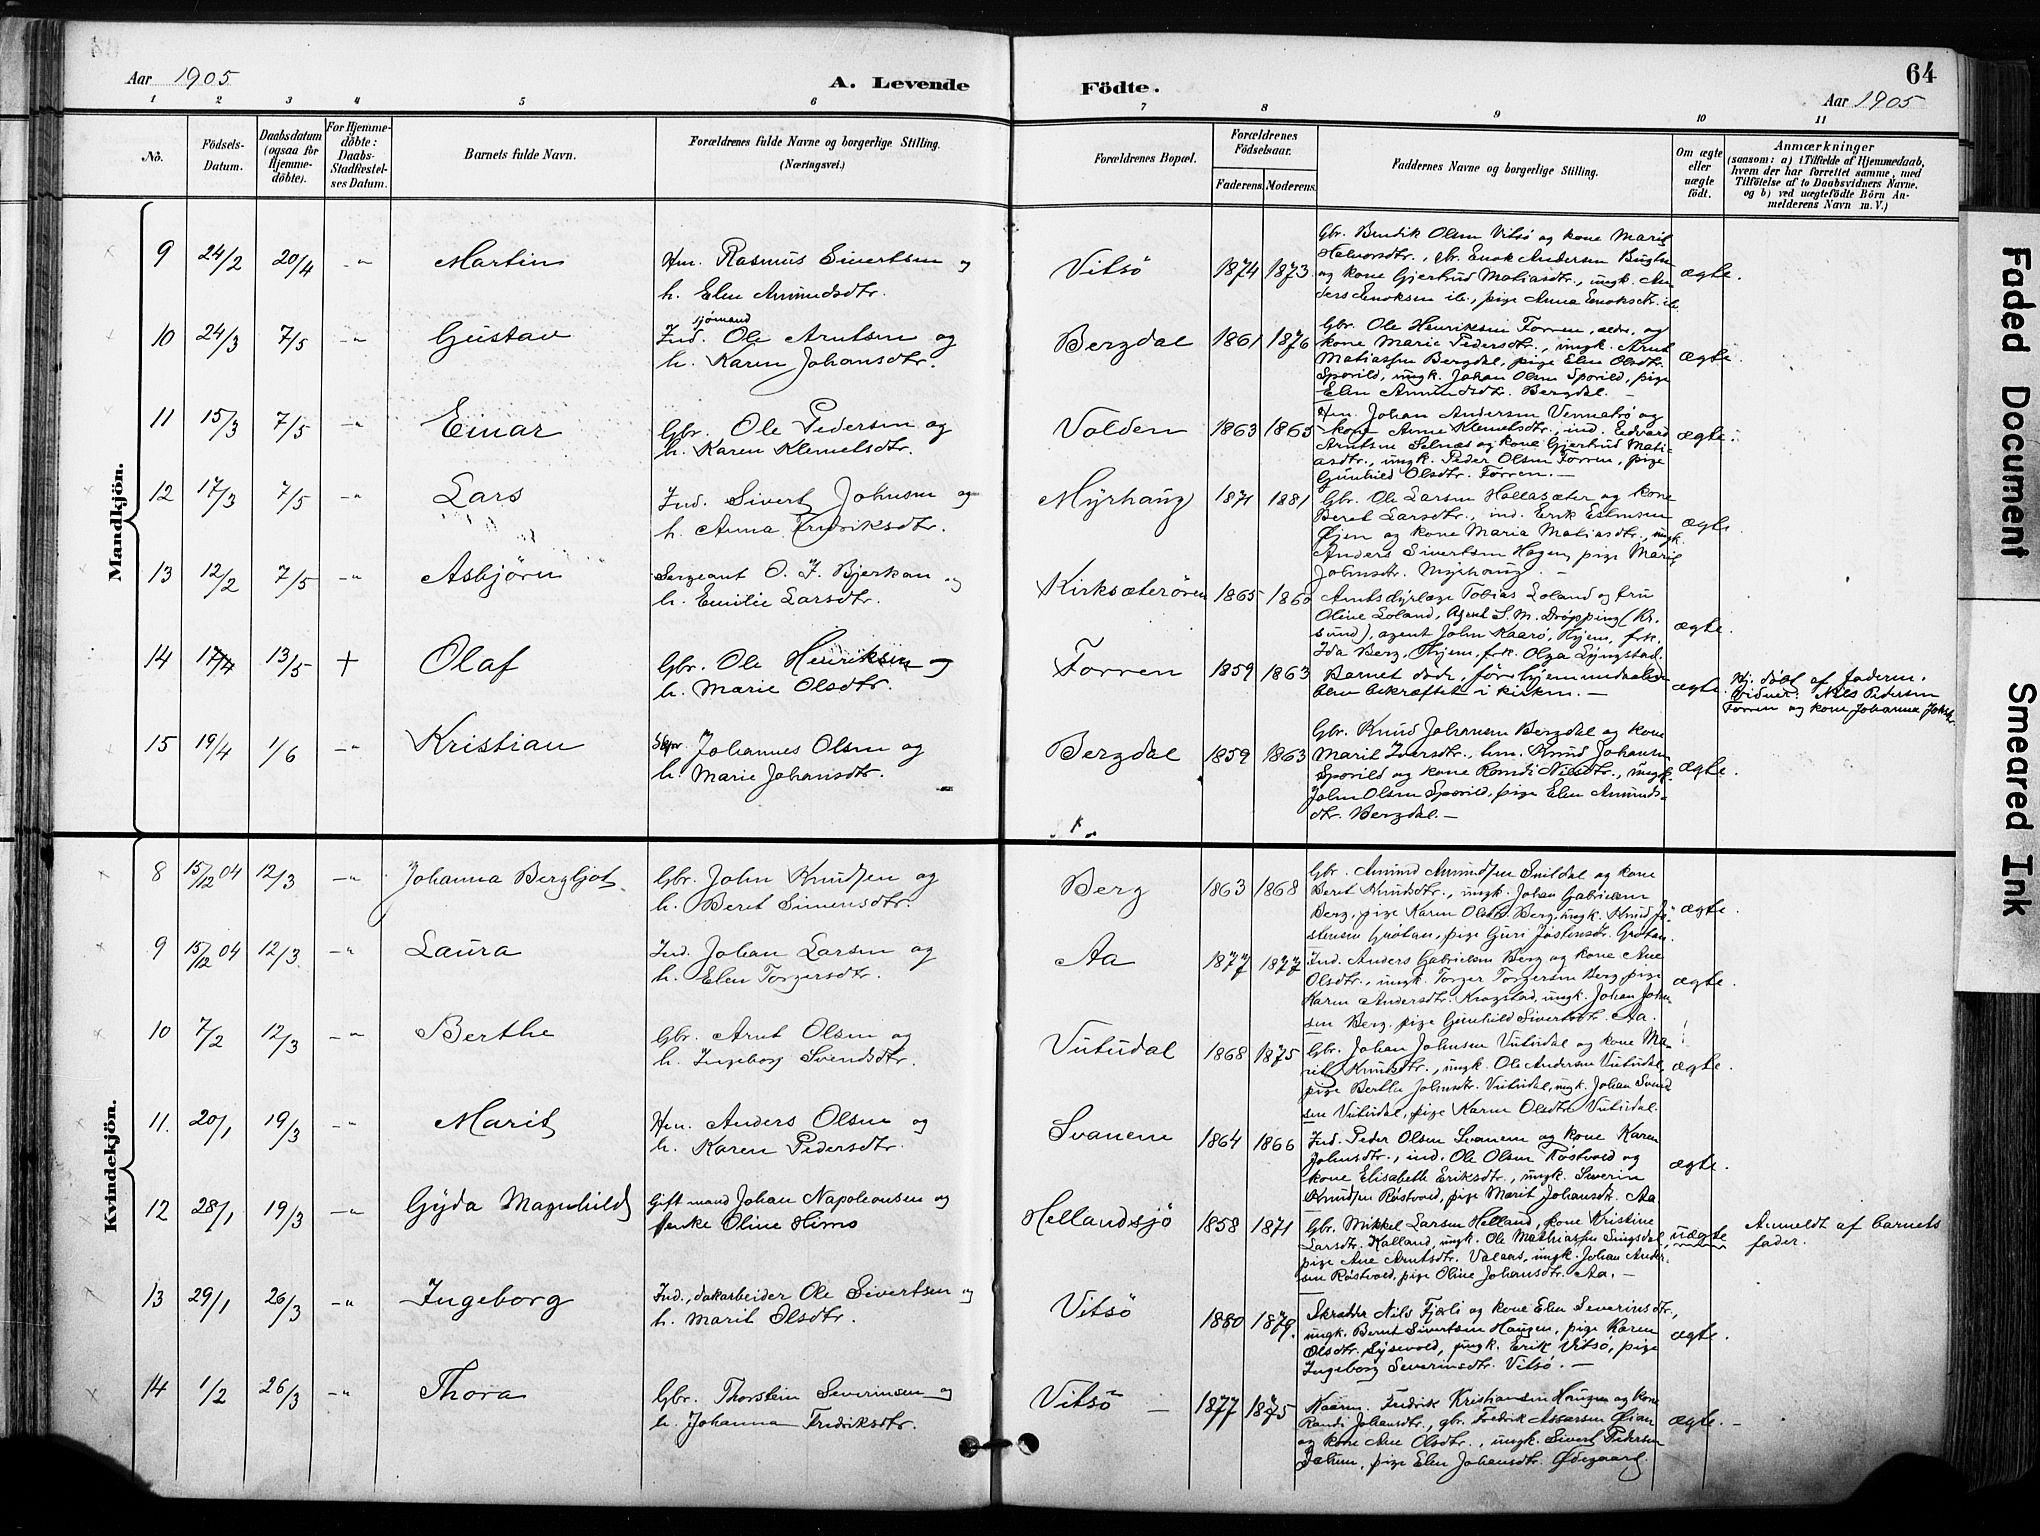 64
Aar 1905
A. Levende Födte.
Aar 1905
1 2 3 4 5 6 7 8 9 10 11
No.
Födsels-
Datum.
Daabsdatum
(ogsaa for
Hjemme-
döbte).
For Hjemme-
döbte:
Daabs-
Stadfæstel-
ses Datum.
Barnets fulde Navn.
Forældrenes fulde Navne og borgerlige Stilling.
(Næringsvei.)
Forældrenes Bopæl.
Forældrenes
Födselsaar.
Faderens. Moderens.
Faddernes Navne og borgerlige Stilling.
Om ægte
eller
uægte
födt.
Anmærkninger
(saasom: a) i Tilfælde af Hjemmedaab,
hvem der har forrettet samme, med
Tilföielse af to Daabsvidners Navne,
og b) ved uægtefödte Börn An-
melderens Navn m. V.)
Mandkjön.
9 24/2 20/4 -"- Martin
Hm. Rasmus Sivertsen og
h. Elen Amundsdtr.
Vitsö 1874 1873
Gbr. Bendik Olsen Vitsø og kone Marit
Halvorsdtr., gbr. Enok Andersen
og kone Gjertrud Matiasdtr., ungk. An-
ders Enoksen ib., pige Anna Enoksdtr. ib.
ægte.
10 24/3 7/5 -"- Gustav
sjømand
Ind. Ole Arntsen og
h. Karen Johansdtr.
Bergdal 1861 1876
Gbr. Ole Henriksen Forren, ældr., og
kone Marie Pedersdtr., ungk. Arnt
Matiassen Bergdal, pige Elen Olsdtr.
Sporild, ungk. Johan Olsen Sporild, pige
Elen Amundsdtr. Bergdal. -
ægte.
11 15/3 7/5 -"- Einar
Gbr. Ole Pedersen og
h. Karen Klemetsdtr.
Volden 1863 1865
Hm. Johan Andersen Vennatrø og
kone Anne Klemetsdtr., ind. Edvard
Arntsen Selnæs og kone Gjertrud Mati-
asdtr., ungk. Peder Olsen Forren, pige
Gunhild Olsdtr. Forren. -
ægte.
12 17/3 7/5 -"- Lars
Ind. Sivert Johnsen og
h. Anna Fredriksdtr.
Myrhaug 1871 1881
Gbr. Ole Larsen Hollasæter og kone
Beret Larsdtr., ind. Erik Estensen
Øien og kone Maria Matiasdtr., ungk.
Anders Sivertsen Hagen, pige Marit
Johnsdtr. Myrhaug. -
ægte.
13 12/2 7/5 -"- Asbjørn
Sergeant O. J. Bjerkan og
h. Emilie Larsdtr.
Kirksæterøren 1865 1860
Amtsdyrlæge Tobias Loland og fru
Oline Loland, Agent S. M. Drøpping (Kr.
sund), agent John Kaarø, Hjem, frk.
Ida Berg, Hjem, frk. Olga Lyngstad.
ægte.
14 17/4 13/5 + Olaf
Gbr. Ole Henriksen og
h. Marie Olsdtr.
Forren 1859 1863
Barnet døde, før hjemmedaaben
blev bekræftet i kirken. -
ægte.
Hj. døbt af faderen.
Vidner: Nils Pedersen
Forren og kone Johanna Johsdtr.
15 19/4 1/6 -"- Kristian
Johannes Olsen og
h. Marie Johansdtr.
Bergdal 1859 1863
Gbr. Knud Johansen Bergdal og kone
Marit Iversdtr., hm. Knud Johansen
Sporild og kone Randi Nilsdtr., ungk.
John Olsen Sporild, pige Elen Amunds-
dtr. Bergdal. -
ægte.
Kvindekjön.
8 15/12 04 12/3 -"- Johanna Bergljot
Gbr. John Knudsen og
h. Beret Simensdtr.
Berg 1863 1868
Gbr. Amund Amundsen Snildal og kone
Beret Knudsdtr., ungk. Johan Gabrielsen
Berg, pige Karen Olsdtr. Berg, ungk. Knud Jo-
stensen Grøtan, pige Guri Jostensdtr. Grøtan.
ægte.
9 15/12 04 12/3 -"- Laura
Ind. Johan Larsen og
h. Elen Torgersdtr.
Aa 1877 1877
Ind. Anders Gabrielsen Berg og kone Ane
Olsdtr., ungk. Torger Torgersen Berg, pige
Karen Andersdtr. Krogstad, ungk. Johan Johan-
sen Berg, pige Gunhild Sivertsdtr. Aa.
ægte.
10 7/2 12/3 -"- Berthe
Gbr. Arnt Olsen og
h. Ingeborg Svendsdtr.
Vutudal 1868 1875
Gbr. Johan Johnsen Vutudal og kone Ma-
rit Knudsdtr., ungk. Ole Andersen Vutudal,
pige Berthe Johnsdtr. Vutudal, ungk. Johan Svend-
sen Vutudal, pige Karen Olsdtr. Vutudal.
ægte.
11. 20/1 19/3 -"- Marit
Hm. Anders Olsen og
h. Karen Pedersdtr.
Svanem 1864 1866
Ind. Peder Olsen Svanem og kone Karen
Johnsdtr., ind. Ole Olsen Røstvold og
kone Elisabeth Eriksdtr., ungk. Severin
Knudsen Røstvold, pige Marit Johansdtr. Aa.
ægte.
12 28/1 19/3 -"- Gyda Magnhild
Gift mand Johan Napoleonsen og
Oline Hims
Hellandsjö 1858 1871
Gbr. Mikkel Larsen Helland, kone Kristine
Larsdtr. Kalland, ungk. Ole Mathiassen Singsdal,
pige Ane Arntsdtr. Valaas, ungk. Johan Ander-
sen Røstvold, pige Oline Johansdtr. Aa. -
uægte
Anmeldt af barnets
fader.
13 29/1 26/3 -"- Ingeborg
Ind., sakarbeider Ole Sivertsen og
h. Marit Olsdtr.
Vitsö 1880 1879.
Skrædder Nils Fjærli og kone Elen Severinsdtr.,
ungk. Bernt Sivertsen Haugen, pige Karen
Olsdtr. Lysevold, ungk. Erik Vitsø, pige
Ingeborg Severinsdtr. Vitsø. -
ægte.
14 1/2 26/3 -"- Thora
Gbr. Thorstein Severinsen og
h. Johanna Fredriksdtr.
Vitsö - 1877 1875
Fredrik Kristiansen Haugen og kone
Randi Johansdtr., gbr. Fredrik Assersen Øian
og kone Ane Olsdtr., ungk. Sivert Pedersen
pige Elen Johansdtr. Ødegaard.
ægte. -
Faded Document
Smeared Ink